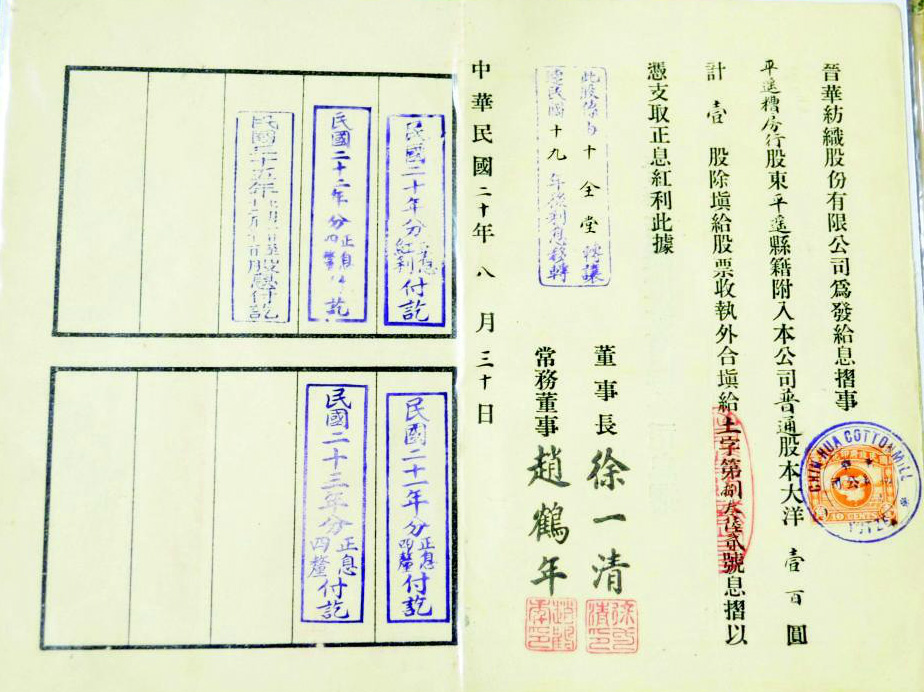 晉華紡織股份有限公司爲發給息摺事
平遙糟房行股東平遙縣籍附入本公司普通股本大洋壹百圓
計壹股除塡給股票收執外合塡給土字第捌陸貳號息摺以
憑支取正息紅利此據
此股係由十全堂轉讓
民國十九年利息移轉
董事長徐一清
常務董事趙鶴年
中華民國二十年八月三十日
CHIN HUA COTTON MILL
民國二十年分正息紅利付訖
民國二十一年分正息四釐付訖
民國二十二年分正息四釐付訖
民國二十三年分正息四釐付訖
民國二十五年股息付訖